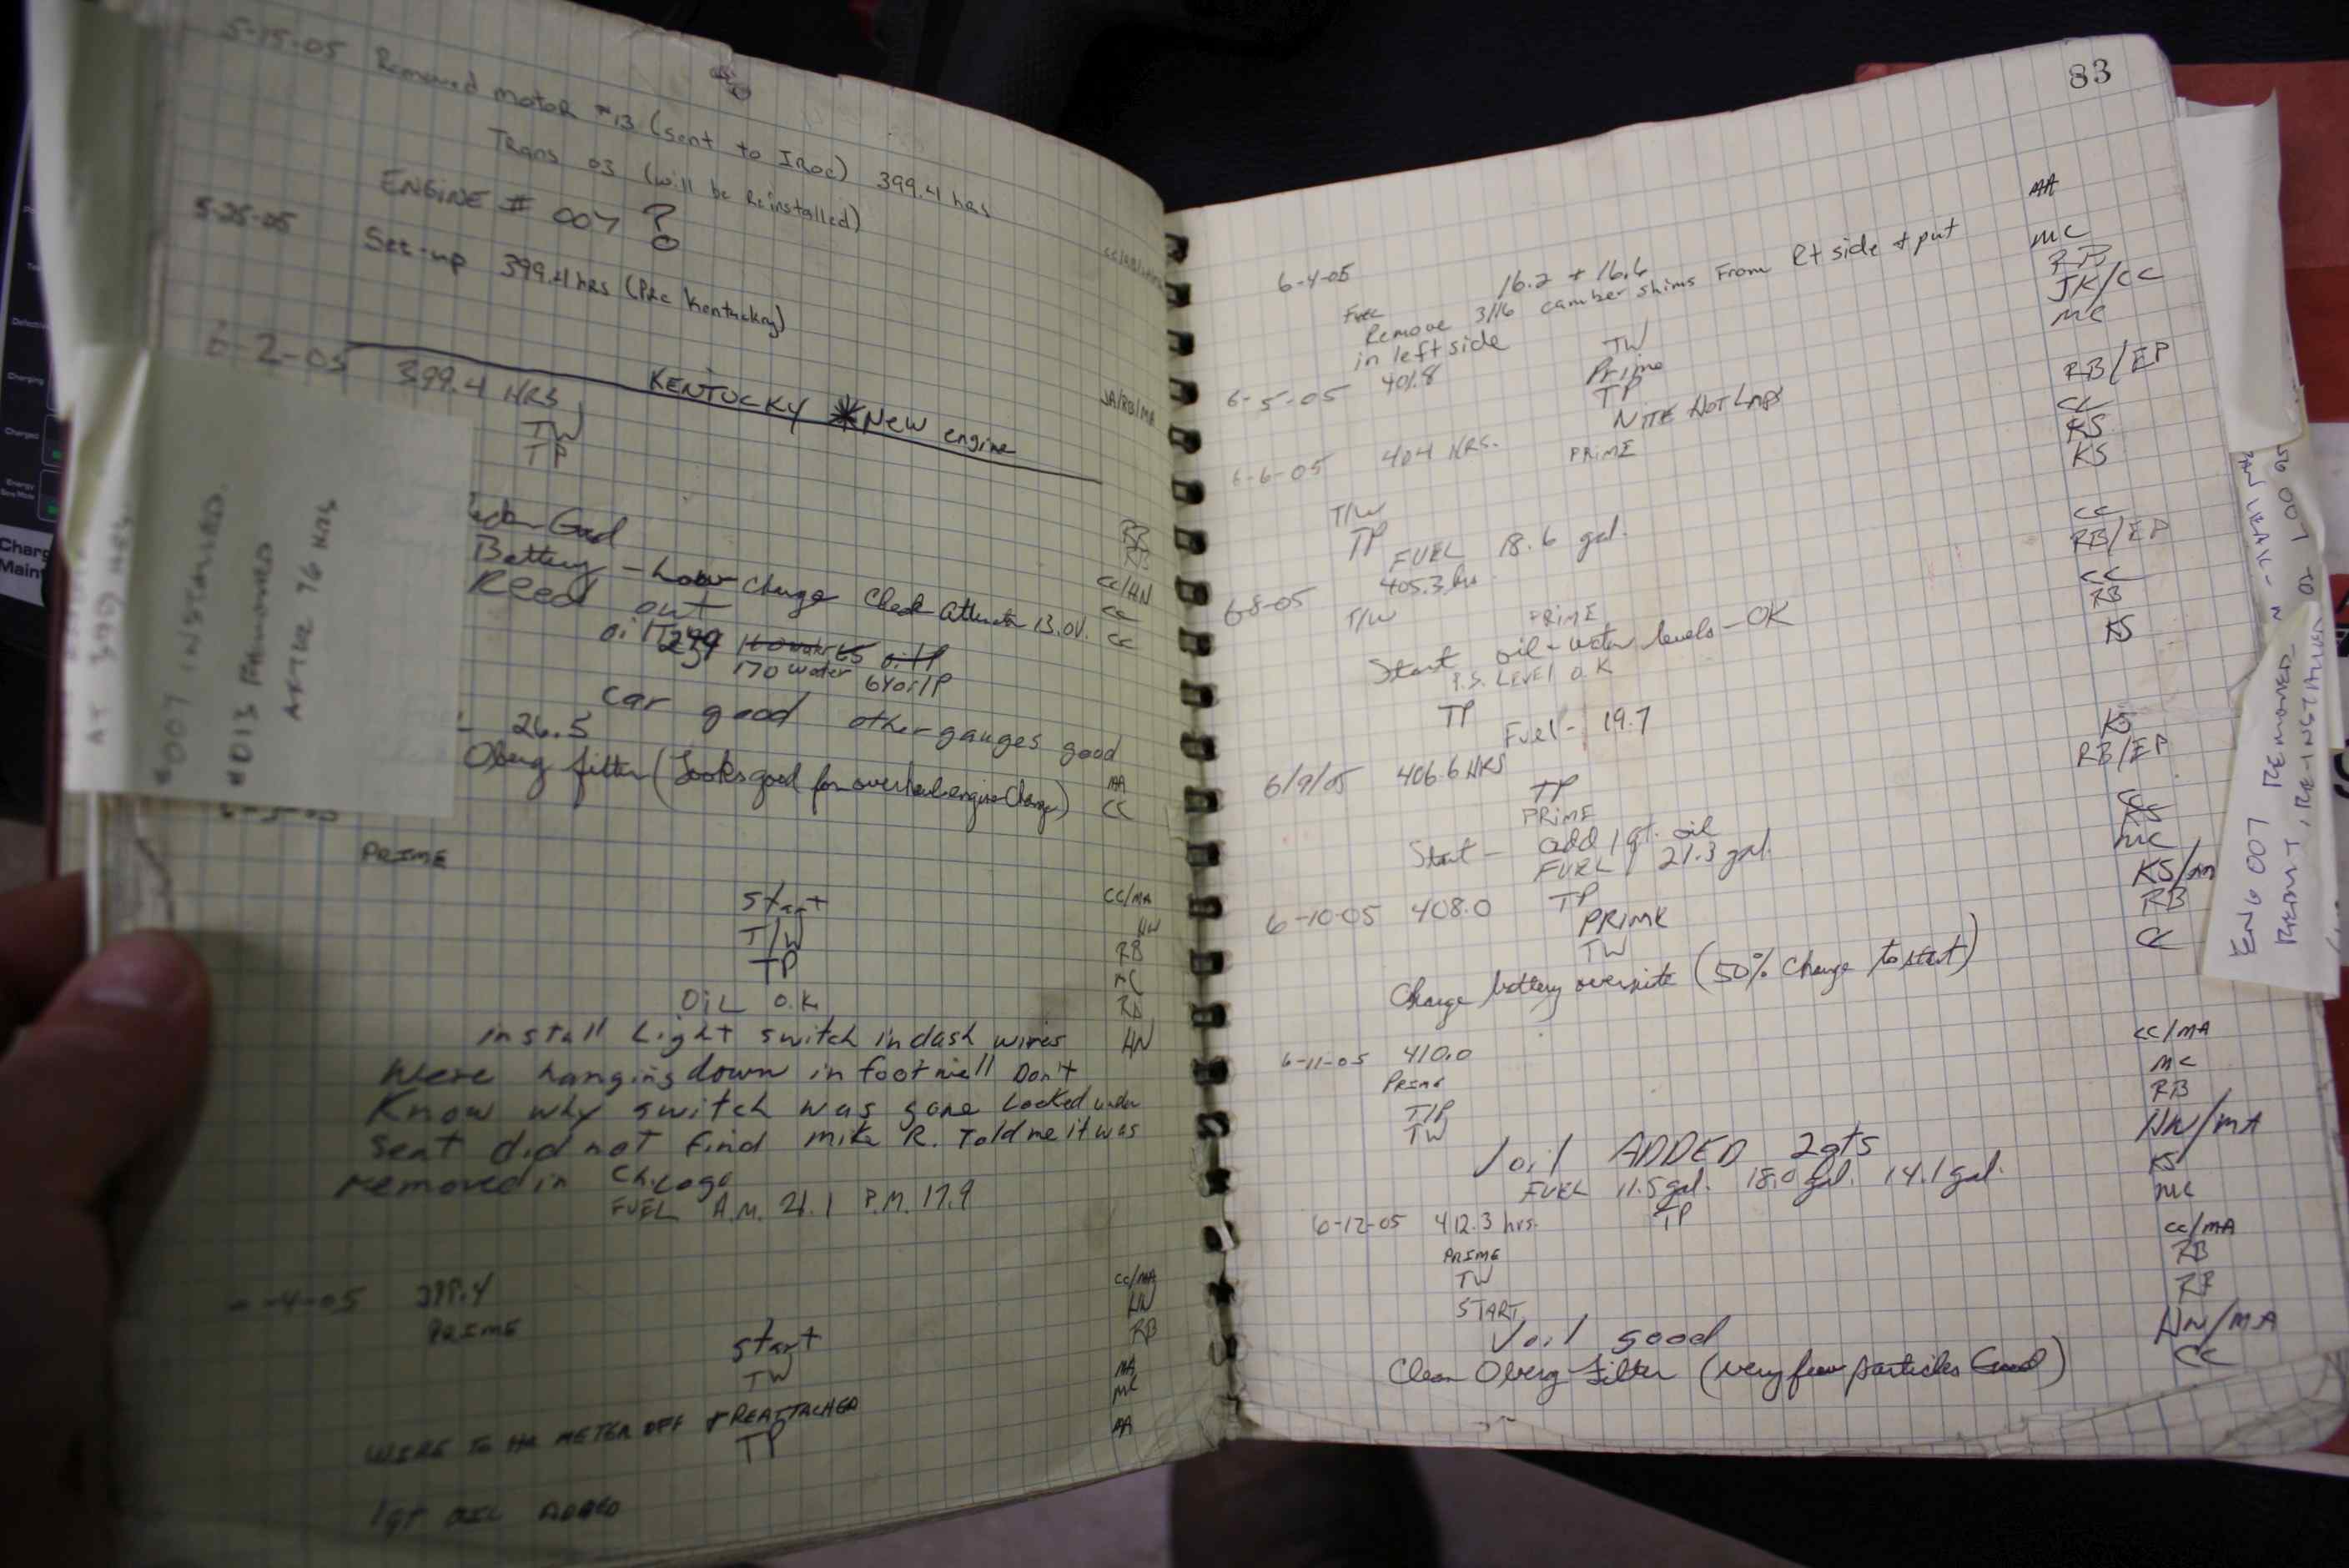 5-15-05 Removed motor #13 (sent to IROC) 399.4 hrs
Trans 03 (will be Reinstalled)
ENGINE # 007 ?
5-25-05 Set-up 399.4 hrs (Pre Kentucky)
JA/RB/MA
6-2-05 399.4 HRS KENTUCKY *New engine
TW
TP
Good
Battery - Low charge Check 13.0V.
CC/HN
CC
Reed out
CC
170 water 64 oil P
car good other gauges good
26.5
MA
Oberg filter (Looks good for overhaul engine Change)
CC
PRIME
CC/MA
start
HN
T/W
RB
TP
MC
OIL O.K.
RB
install Light switch in dash wires
HN
Were hanging down in footwell Don't
Know why switch was gone Looked under
seat did not find mike R. Told me it was
removed in Chicago
FUEL A.M. 21.1 P.M. 17.9
-4-05 399.4
CC/MA
PRIME
HN
start
RB
TW
MA
MC
WIRE TO HR METER OFF + REATTACHED
TP
MA
1 qt OIL ADDED
AT 399 HRS
#007 INSTALLED.
#013 REMOVED
AFTER 76 HRS
83
MA
6-4-05
Fuel 16.2 + 16.6
Remove 3/16 camber shims From Rt side + put
in left side
MC
RB
JK/CC
MC
6-5-05 401.8
TW
Prime
TP
NITE HOT LAPS
RB/EP
CC
KS
KS
6-6-05 404 HRS.
PRIME
T/W
TP
CC
RB/EP
FUEL 18.6 gal.
6-8-05 405.3 hrs
T/W
PRIME
CC
RB
Start oil - water levels - OK
P.S. LEVEL O.K
KS
TP
Fuel - 19.7
6/9/05 406.6 HRS
TP
PRIME
KS
RB/EP
Start - add 1 qt. oil
FUEL 21.3 gal.
6-10-05 408.0
TP
PRIME
TW
MC
RB
CC
Charge battery overnite (50% Charge to start)
6-11-05 410.0
CC/MA
Prime
MC
T/P
RB
TW
HN/MA
√ oil ADDED 2 qts
KS
FUEL 11.5 gal. 18.0 gal. 14.1 gal.
MC
6-12-05 412.3 hrs.
TP
CC/MA
PRIME
RB
TW
RB
START
HN/MA
√ oil good
CC
Clean Oberg Filter (very few particles Good)
ENG 007 REMOVED
REINSTALLED
Charging
Charged
Energy